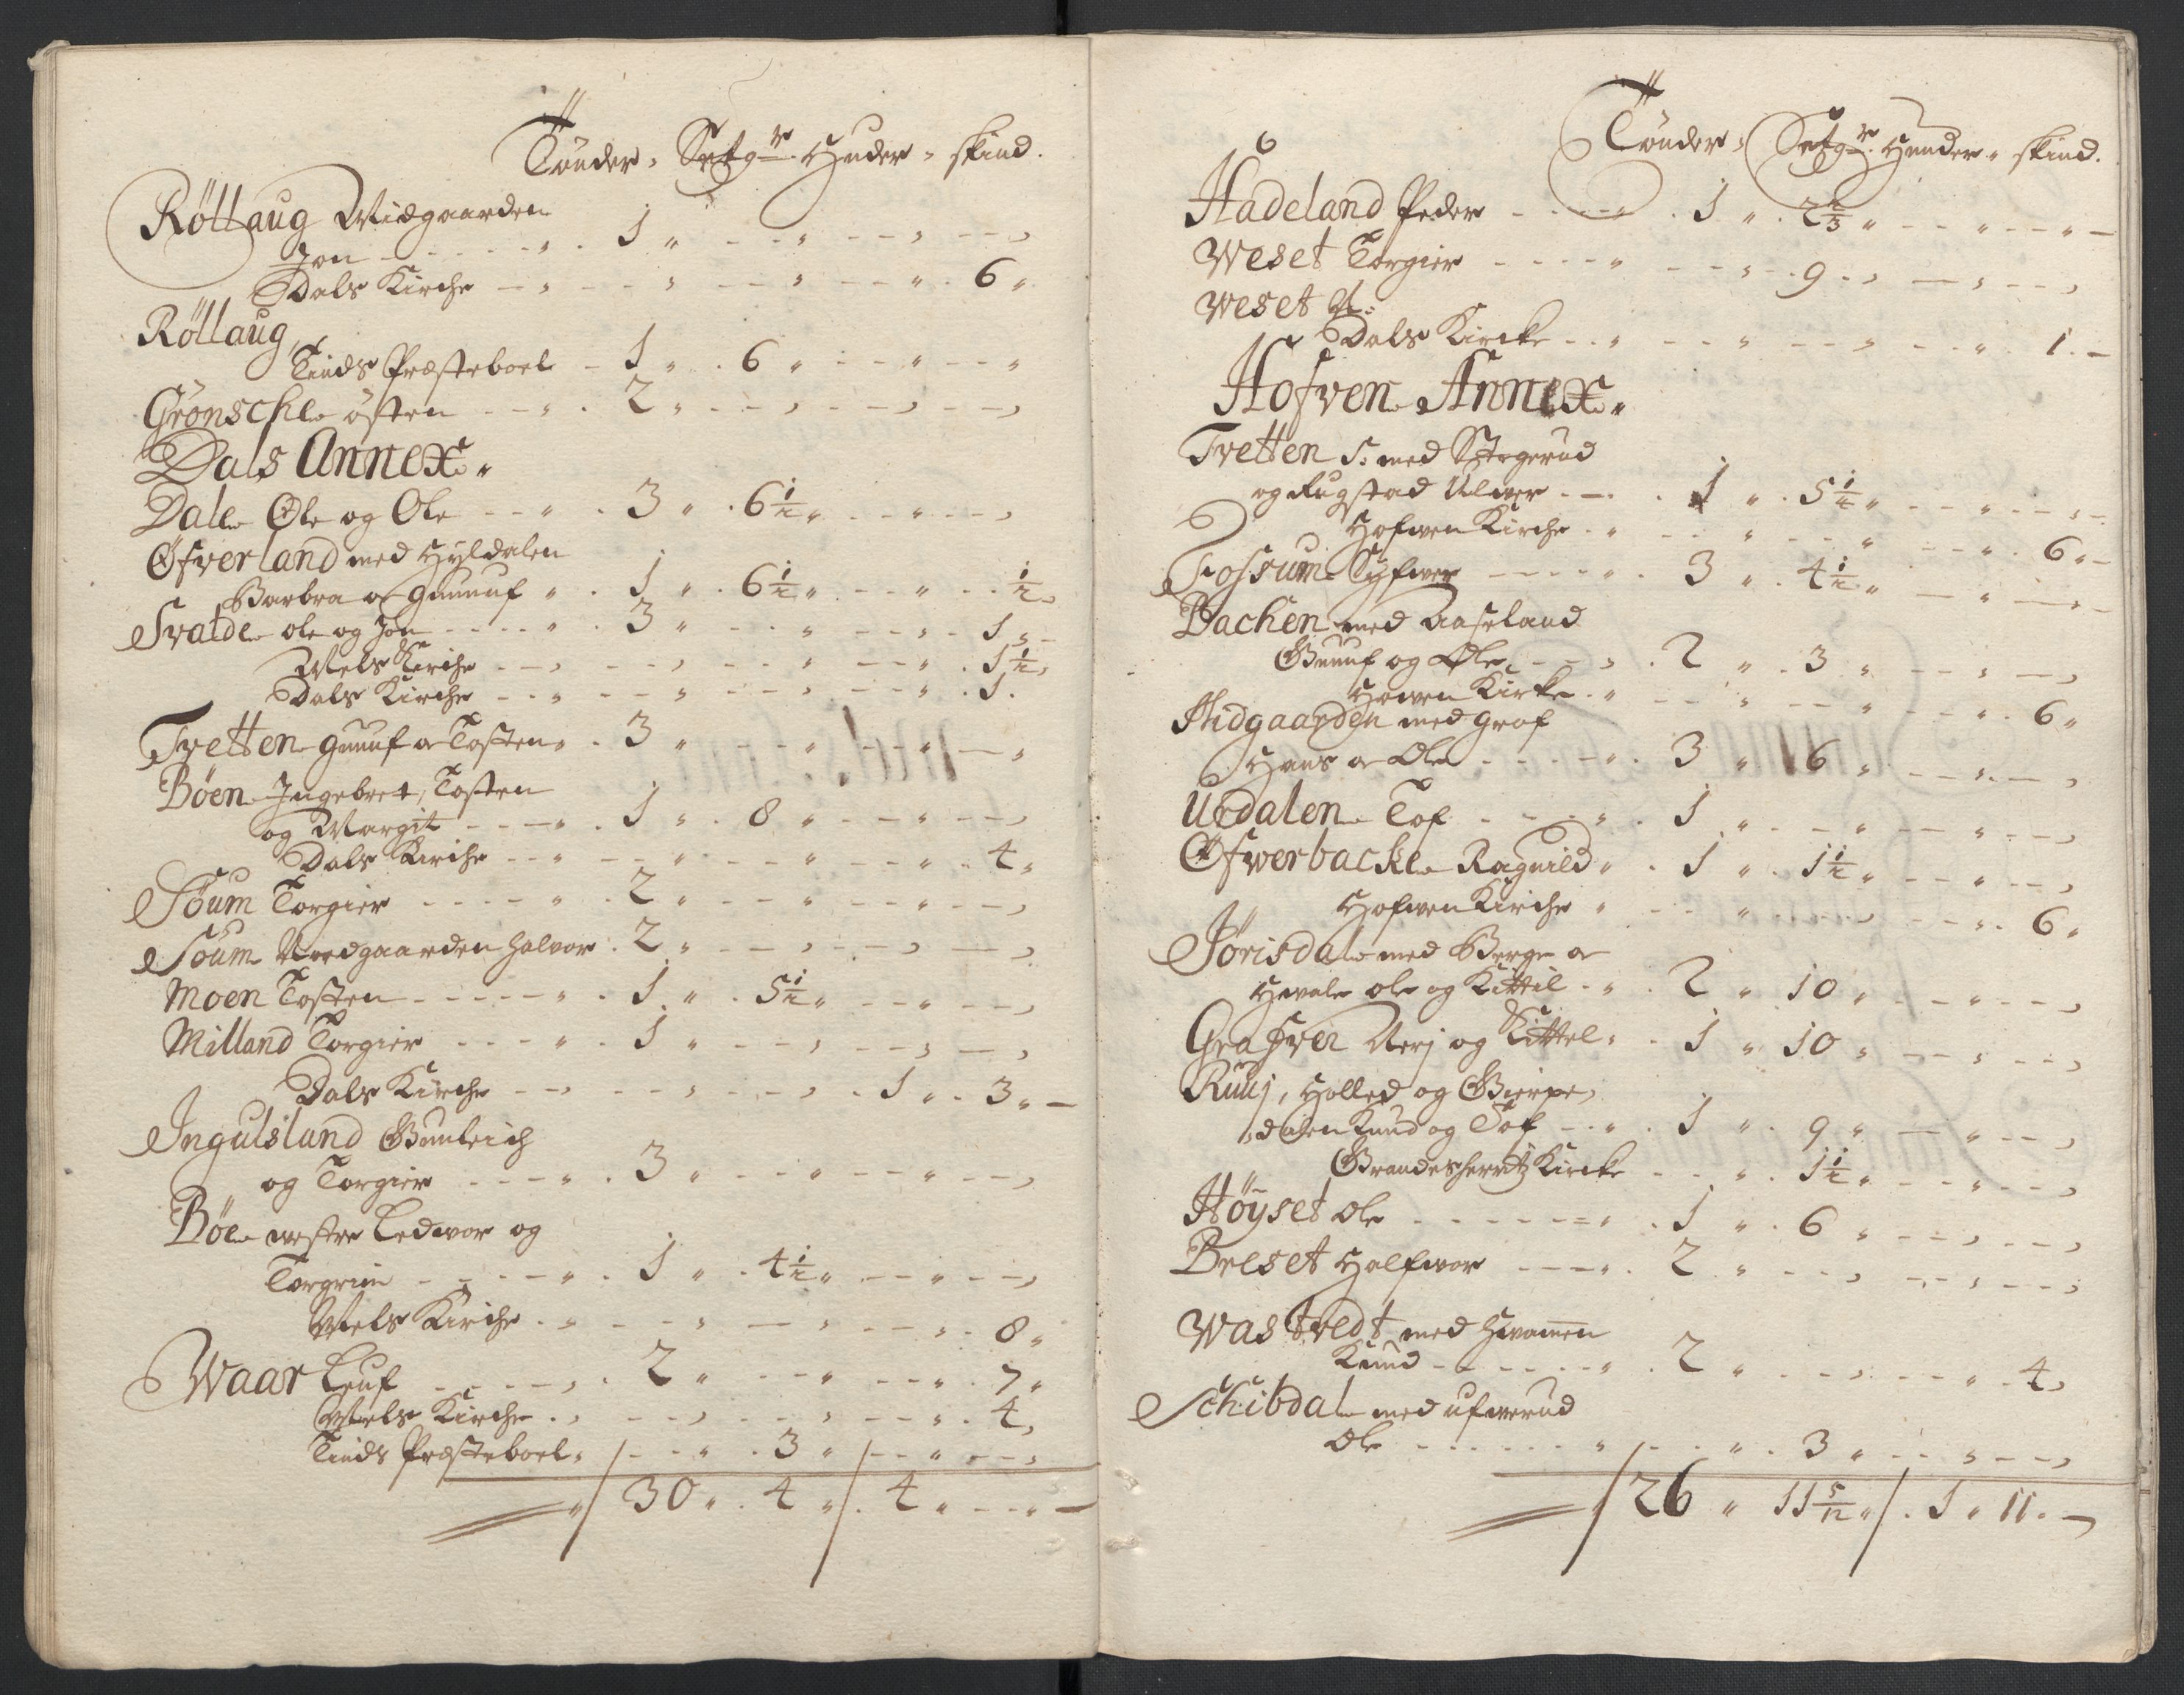 Tönder, Setg.r Huder, skind.
Röllaug Midgaarden
Jon - - - 1 " - - " - - , - - ,
Dals Kirche - , - - , - - , - - " . 6 "
Röllaug
Tinds Præsteboel - 1 " . 6 " - - " - - "
Grönschle östen - - " . 2 " - - , - - , - - ,
Dals Annex.
Dale Ole og Ole - - " . 3 " . 6 1/2 " - - " - - ,
Öfverland med Hyldalen
Barbra o Gunnuf " . 1 " . 6 1/2 " - - " - - 1/2 ,
Svalde ole og Jon - - - " . 3 " - - " - - , . 1 " -
Mels Kirche - - , - - , - - " - - " . 1 1/2 ,
Dals Kirche - - " - - " - - , - - " . 1 .
Tvetten Gunuf o Tosten " . 3 " - - " - - " - - "
Böen Ingebret, Tosten
og Margit - - - " . 1 " . 8 " - - " - - ,
Dals Kirche - - " - - " - - " - - " . 4 "
Söum Torgier - - - - " . 2 " - - " - - " - - ,
Söum Nordgaarden Halvor . 2 " - - , - - , - - ,
Moen Tosten - - - - " . 1 " . 5 1/2 " - - " - - ,
Milland Torgier - - - " . 1 " - - , - - , - - ,
Dals Kirche - - , - - , - - , . 1 " . 3 " -
Ingulsland Gunleich
og Torgier - - - " . 3 " - - " - - " - - ,
Böe westre Ledvor og
Torgrim - - - - " . 1 " . 4 1/2 " - - " - - ,
Mels Kirche . , - - , - - , - - , . 8 "
Waar Leuf - - - - , . 2 " - - " - - " . 7 "
Mels Kirche . , - - , - - , - - " . 4 ,
Tinds Præsteboel " - - " . 3 " - - " - - ,
" 30 " . 4 " . 4 " - - " -
6
Tönder, Setg.r Hunder, skind.
Hadeland Peder - - - - " . 1 " . 2 2/3 " - - " - - " -
Weset Torgier - - - - " - - , . 9 . , - - , - - ,
Weset A:
Dals Kircke - - " - - " - - , - - " . 1 . -
Hofven Annex.
Tvetten S: med Stegerud
og Rugstad Ulver . - . 1 " . 5 1/2 " - - " - - , -
Hofwen Kirche . " - - " - - " - - " . 6 " -
Fossum Syfwer - - - - " . 3 " . 4 1/2 " - - " - - " -
Bachen med Aaseland
Gunuf og Ole - - , . 2 " . 3 " - - , - - ,
Howen Kirke . " - - " - - " - - " . 6 "
Midgaarden med Graf
Hans o Ole - - - - " . 3 " 6 " - - , - - ,
Urdalen Tof - - - - " . 1 " - - " - - " - - ,
Öfwerbacke Ragnild " . 1 " . 1 1/2 " - - " - - ,
Hofwen Kirche " - - " - - , - - " . 6 "
Jörisdal med Berge o
Hwale ole og Kittil - " . 2 " 10 " - - " - - ,
Grafven Nerj og Kittel , . 1 " 10 " - - , - - ,
Ruuj, Holled og Gierpe,
dalen Knud og Tof - . " . 1 " . 9 " - - " - - ,
Grandesherretz Kircke - - " . 1 1/2 " - - " - - ,
Höyset Ole - - - - - - " . 1 " . 6 " - - , - - ,
Breset Halfwor - - - " . 2 " - - , - - , - - ,
Wastvedt med Hwamen
Knud - - - - - " . 2 " - - , - - " . 4 ,
Schibdal med ufwerud
Ole - - - - - - " - - " . 3 " - - , - - ,
26 " 11 5/12 " . 1 " 11 . -